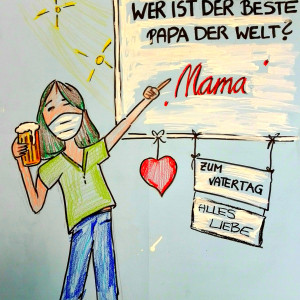 WER IST DER BESTE
PAPA DER WELT?
Mama
ZUM
VATERTAG
ALLES
LIEBE